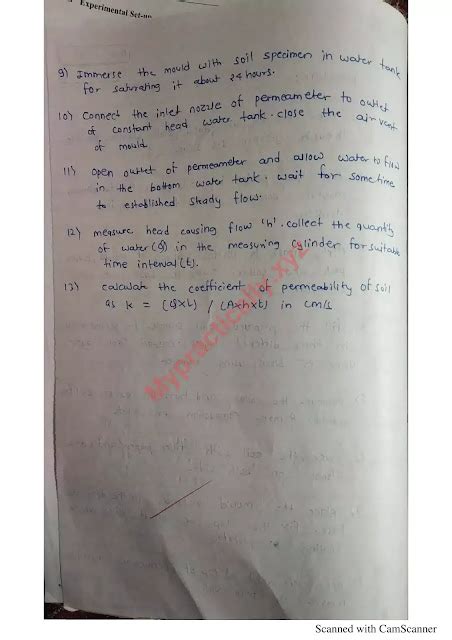 Experimental Set-up
9) Immerse the mould with soil specimen in water tank
for saturating it about 24 hours.
10) Connect the inlet nozzle of permeameter to outlet
of constant head water tank. close the air vent
of mould.
11) open outlet of permeameter and allow water to flow
in the bottom water tank. wait for sometime
to established stady flow.
12) measure head causing flow 'h'. collect the quantity
of water (Q) in the measuring cylinder for suitable
time interval (t).
13) calculate the coefficient of permeability of soil
as k = (Q×L) / (A×h×t) in cm/s
Mypractically.xyz
Scanned with CamScanner